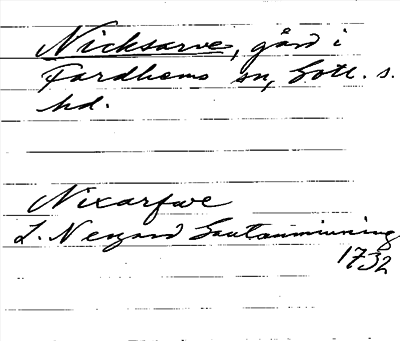 Nicksarve, gård i
Fardhems sn, Gotl. s.
hd.
Nixarfwe
L. Neogard Gautauminning
1732